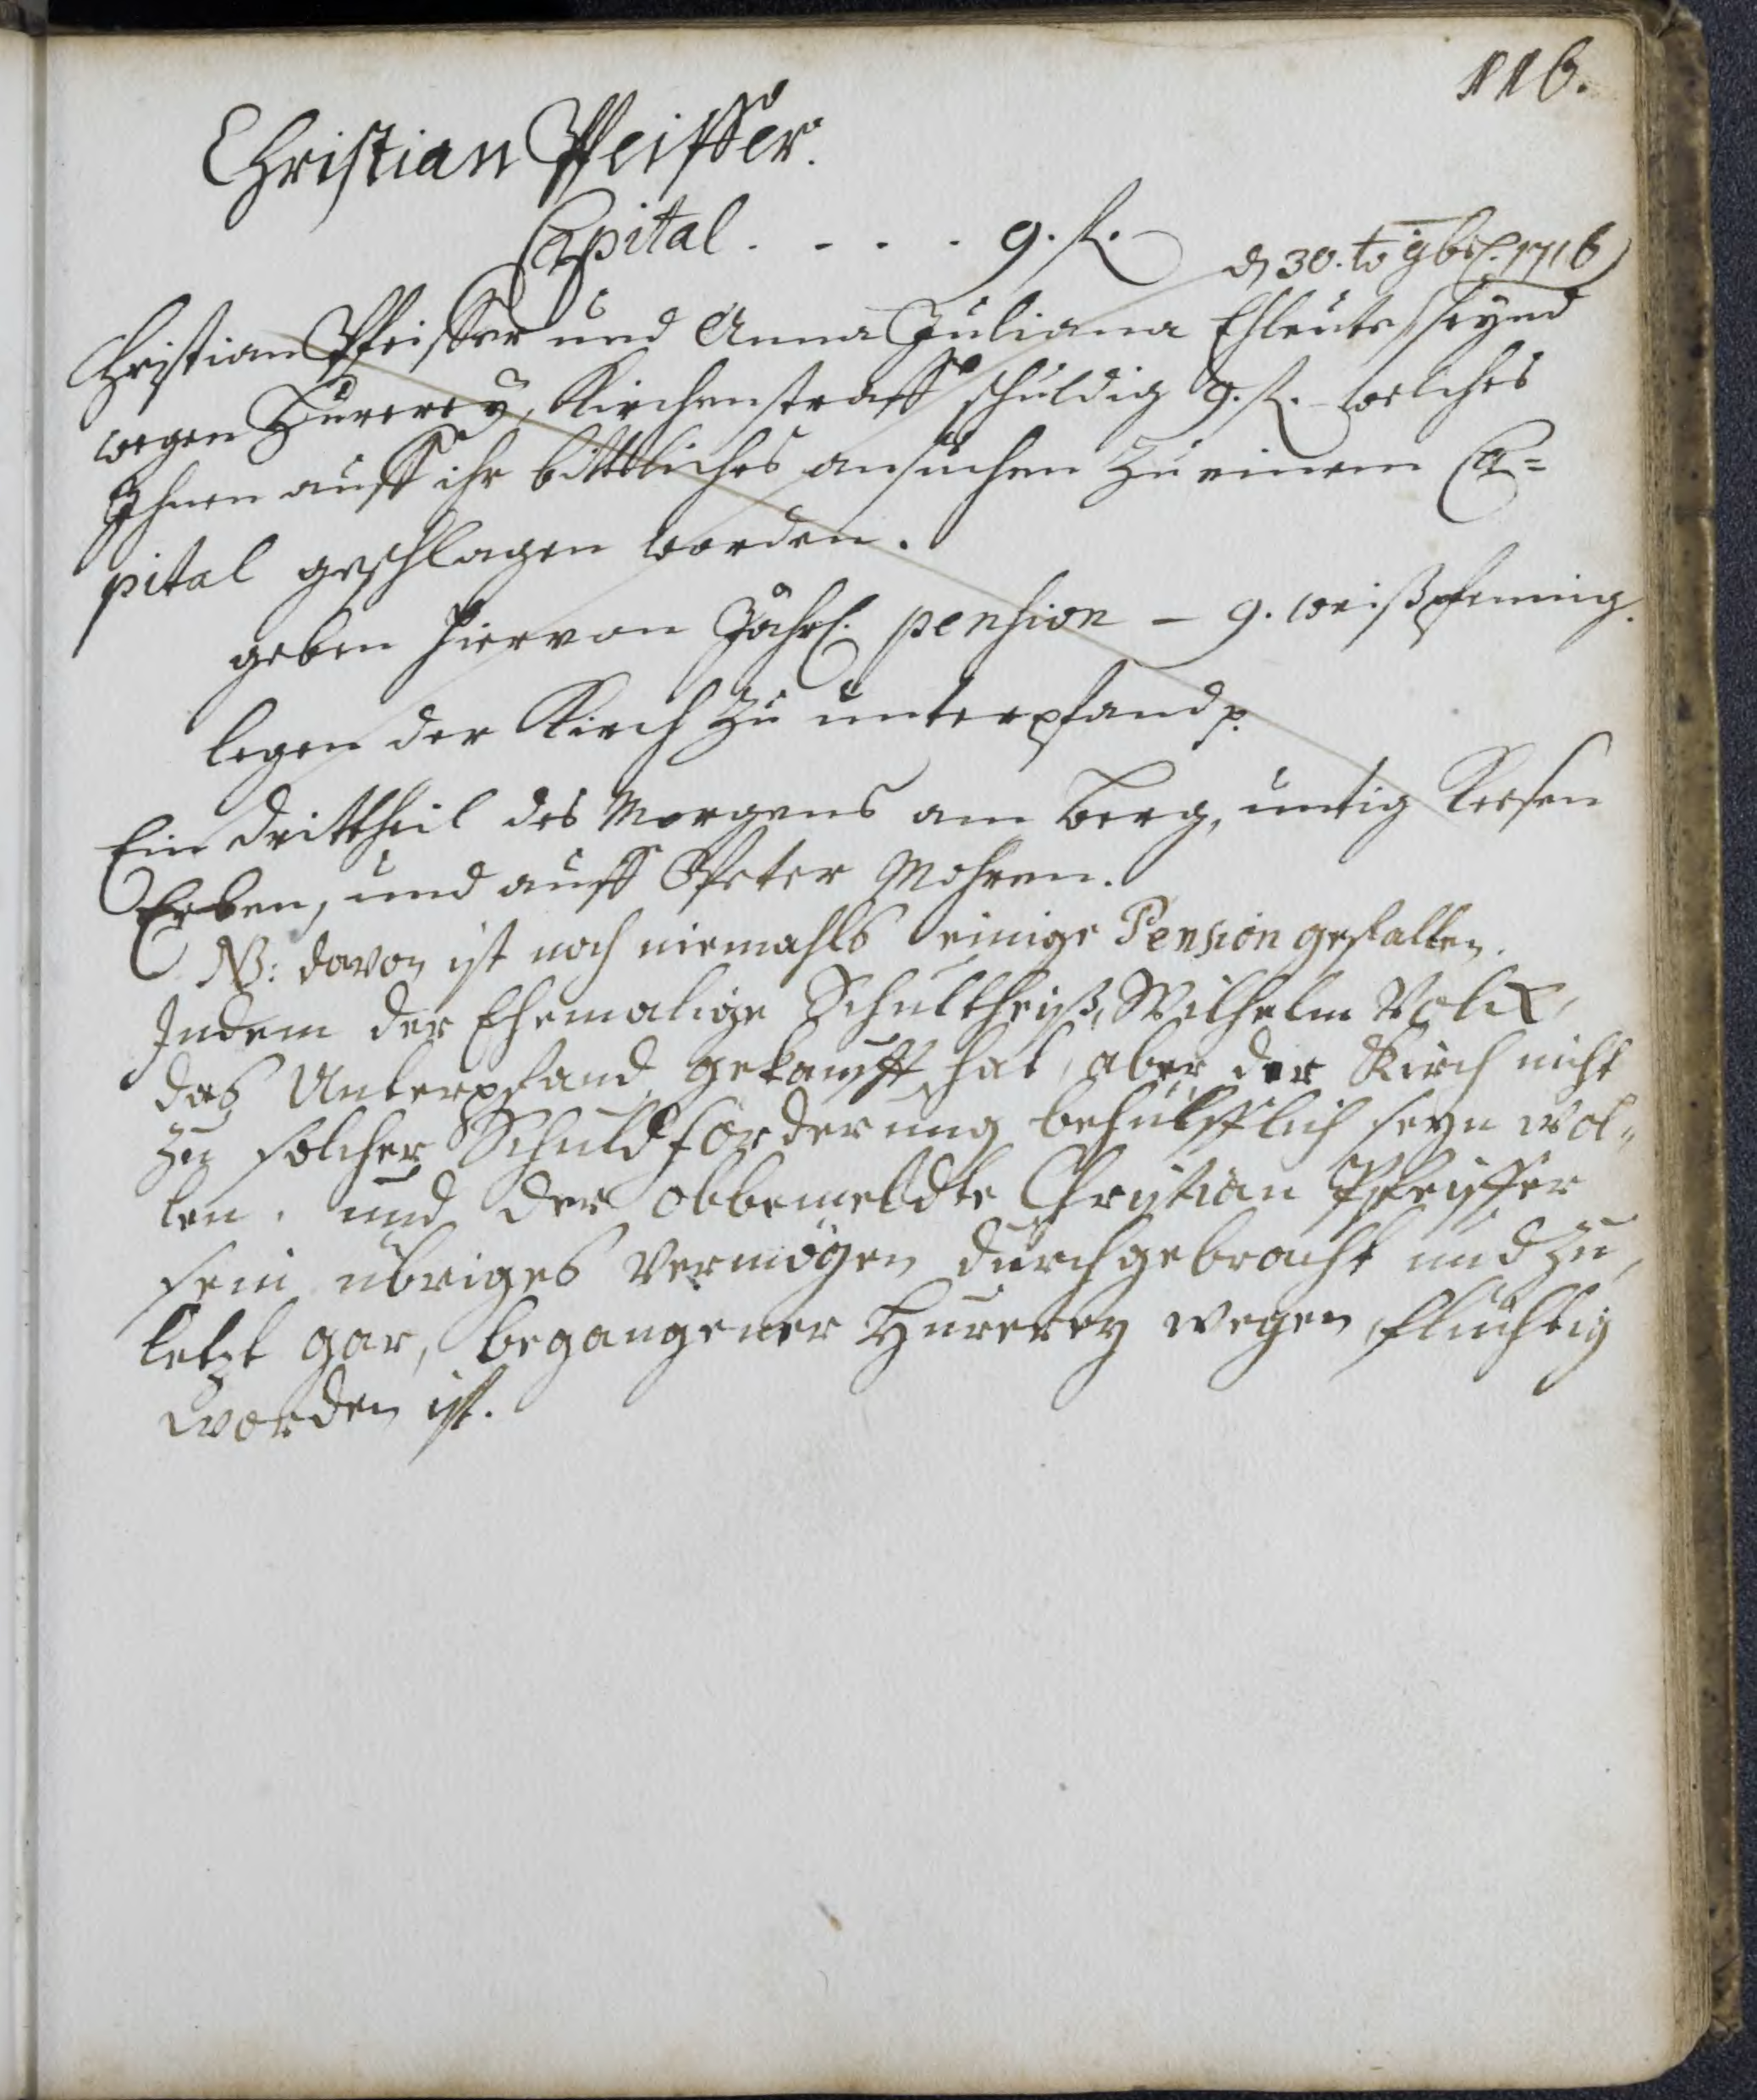 116.
Christian Pfeiffer.
Capital . - . . 9. fl.
d 30. t. 9bris. 1716
Christian Pfeiffer und Anna Juliana Ehleute seynd
wegen Hurerey, Kirchenstraff schuldig 9. fl. welches
Ihnen auff ihr bittliches ansuchen zu einem Ca=
pital geschlagen worden.
geben hiervon Jährl. pension - 9. weißpfennig.
legen der Kirch zu unterpfand p.
Ein drittheil des Morgens am Berg, untig
Erben, und auff Peter Mohren.
NB: davon ist noch niemahls einige Pension gefallen.
Indem der Ehemalige Schultheiß, Wilhelm Volck,
das Unterpfand gekaufft hat, aber der Kirch nicht
zu solcher Schuldforderung behülfflich seyn wol„
len. und der obbemeldte Christian Pfeiffer
sein übriges Vermögen durchgebracht und zu„
letzt gar, begangener Hurerey wegen, flüchtig
worden ist.